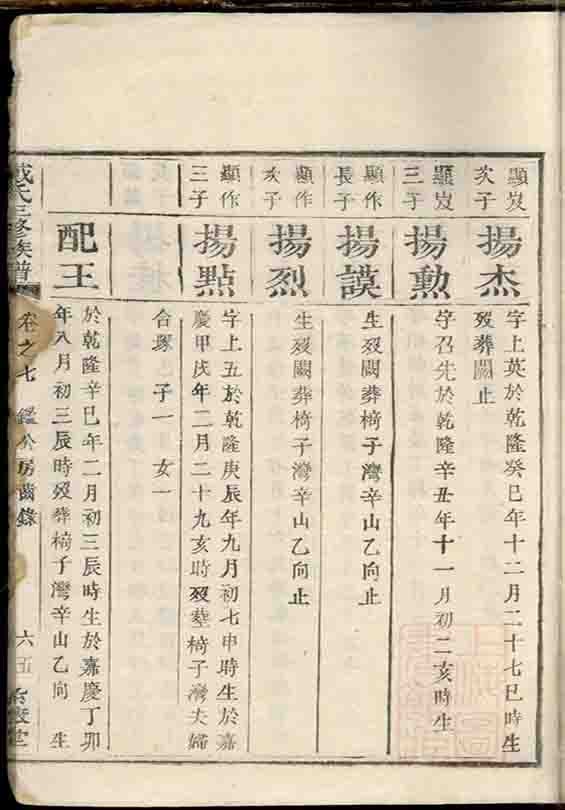 顯岌
次子
揚杰
字上英於乾隆癸巳年十二月二十七巳時生
歿葬闕止
顯岌
三子
揚勲
字召先於乾隆辛丑年十一月初二亥時生
顯作
長子
揚謨
生歿闕葬椅子灣辛山乙向止
顯作
次子
揚烈
生歿闕葬椅子灣辛山乙向止
顯作
三子
揚點
字上五於乾隆庚辰年九月初七申時生於嘉
慶甲戌年二月二十九亥時歿塟椅子灣夫婦
合塚 子一 女一
配王
於乾隆辛巳年二月初三辰時生於嘉慶丁卯
年八月初三辰時歿葬椅子灣辛山乙向 生
戴氏三修族譜
卷之七 鑑公房齒錄
六五